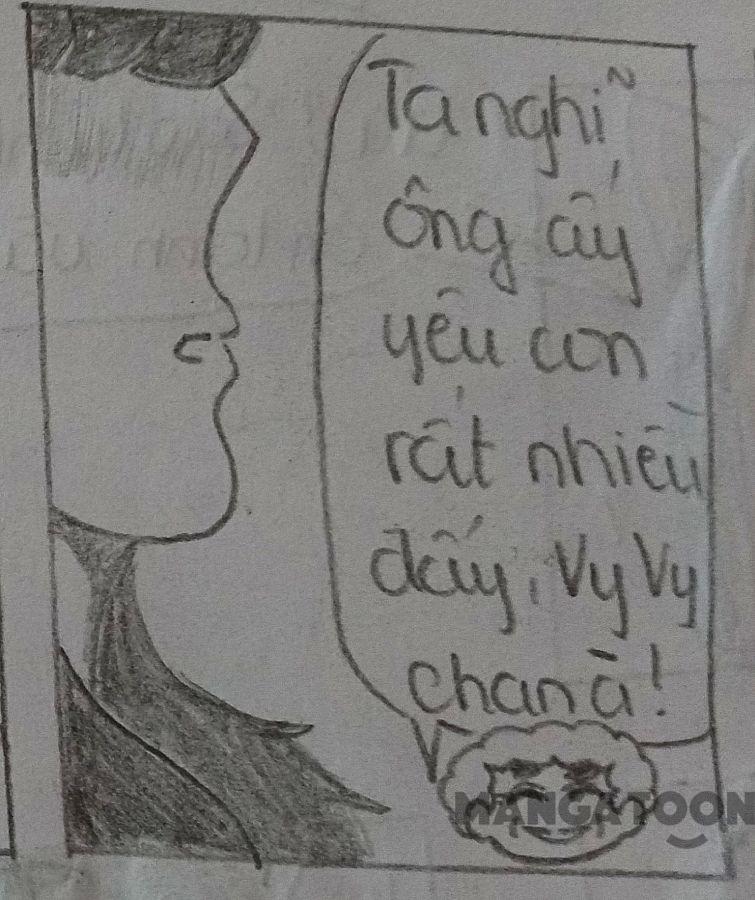 Ta nghĩ
ông ấy
yêu con
rất nhiều
đấy, Vy Vy
chan à!
MANGATOON